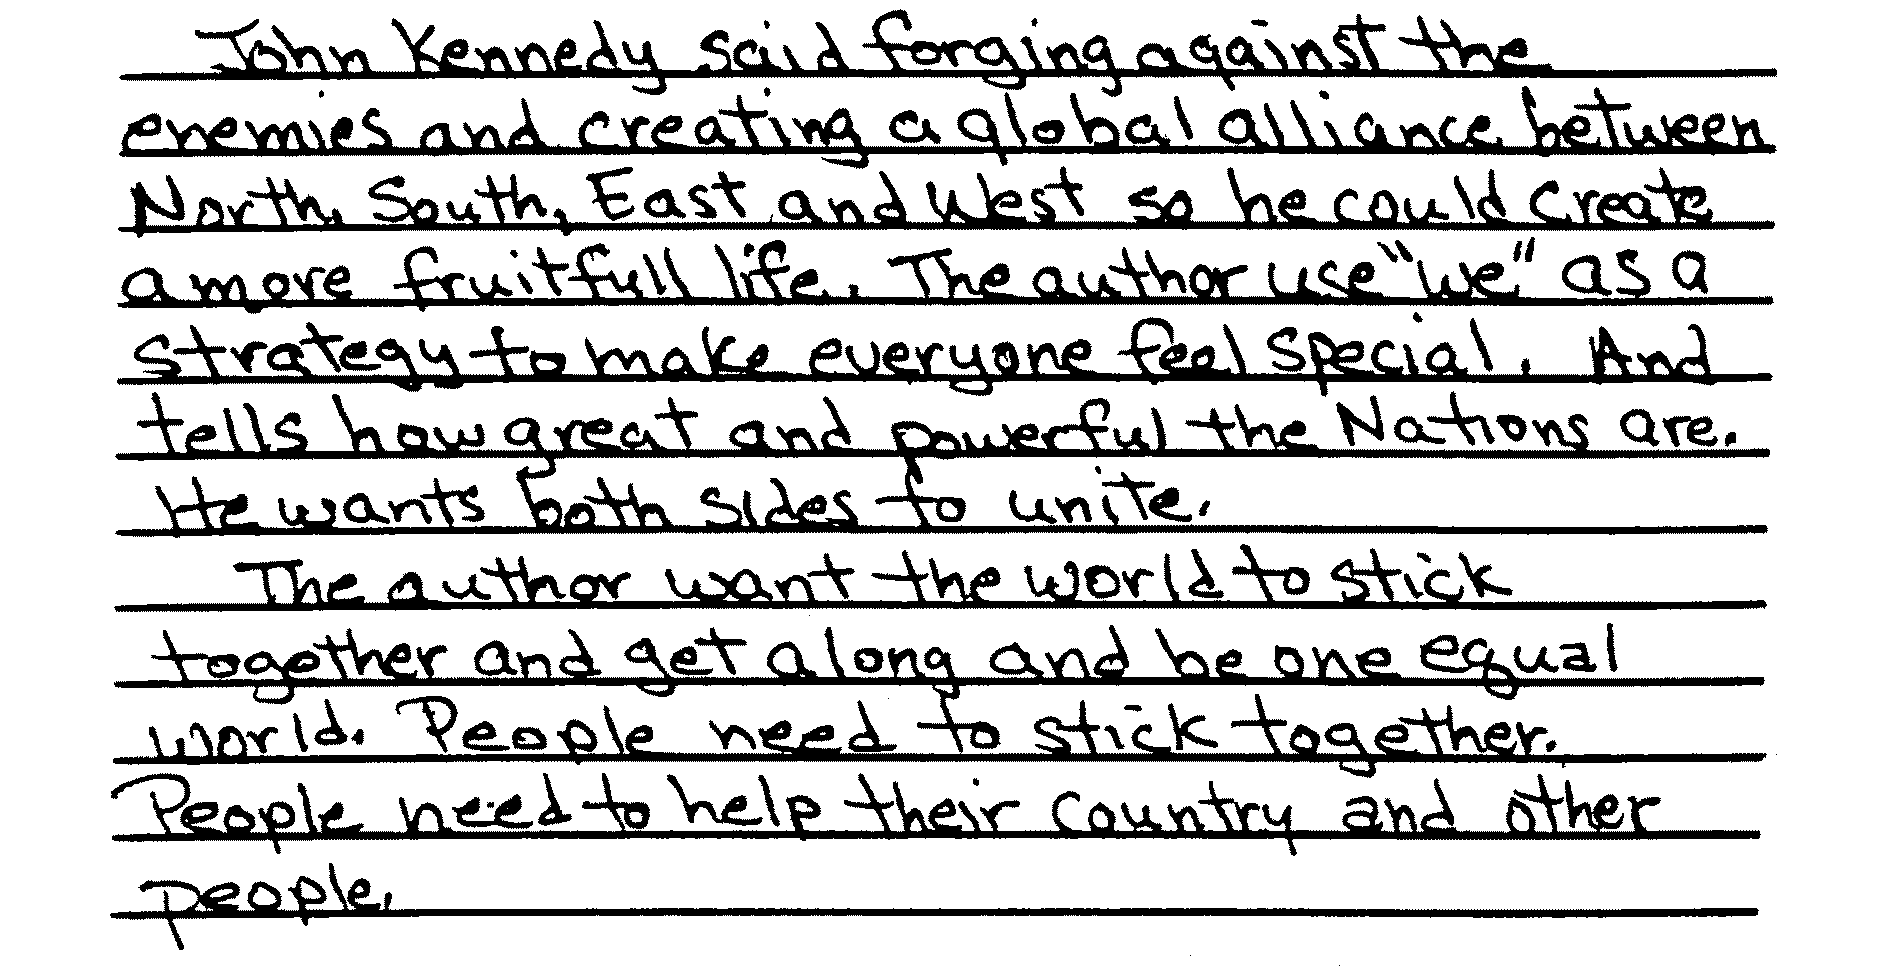 John Kennedy said forging against the
enemies and creating a global alliance between
North, South, East and West so he could create
a more fruitfull life. The author use "we" as a
strategy to make everyone feel special. And
tells how great and powerful the Nations are.
He wants both sides to unite.
The author want the world to stick
together and get along and be one equal
world. People need to stick together.
People need to help their country and other
people.